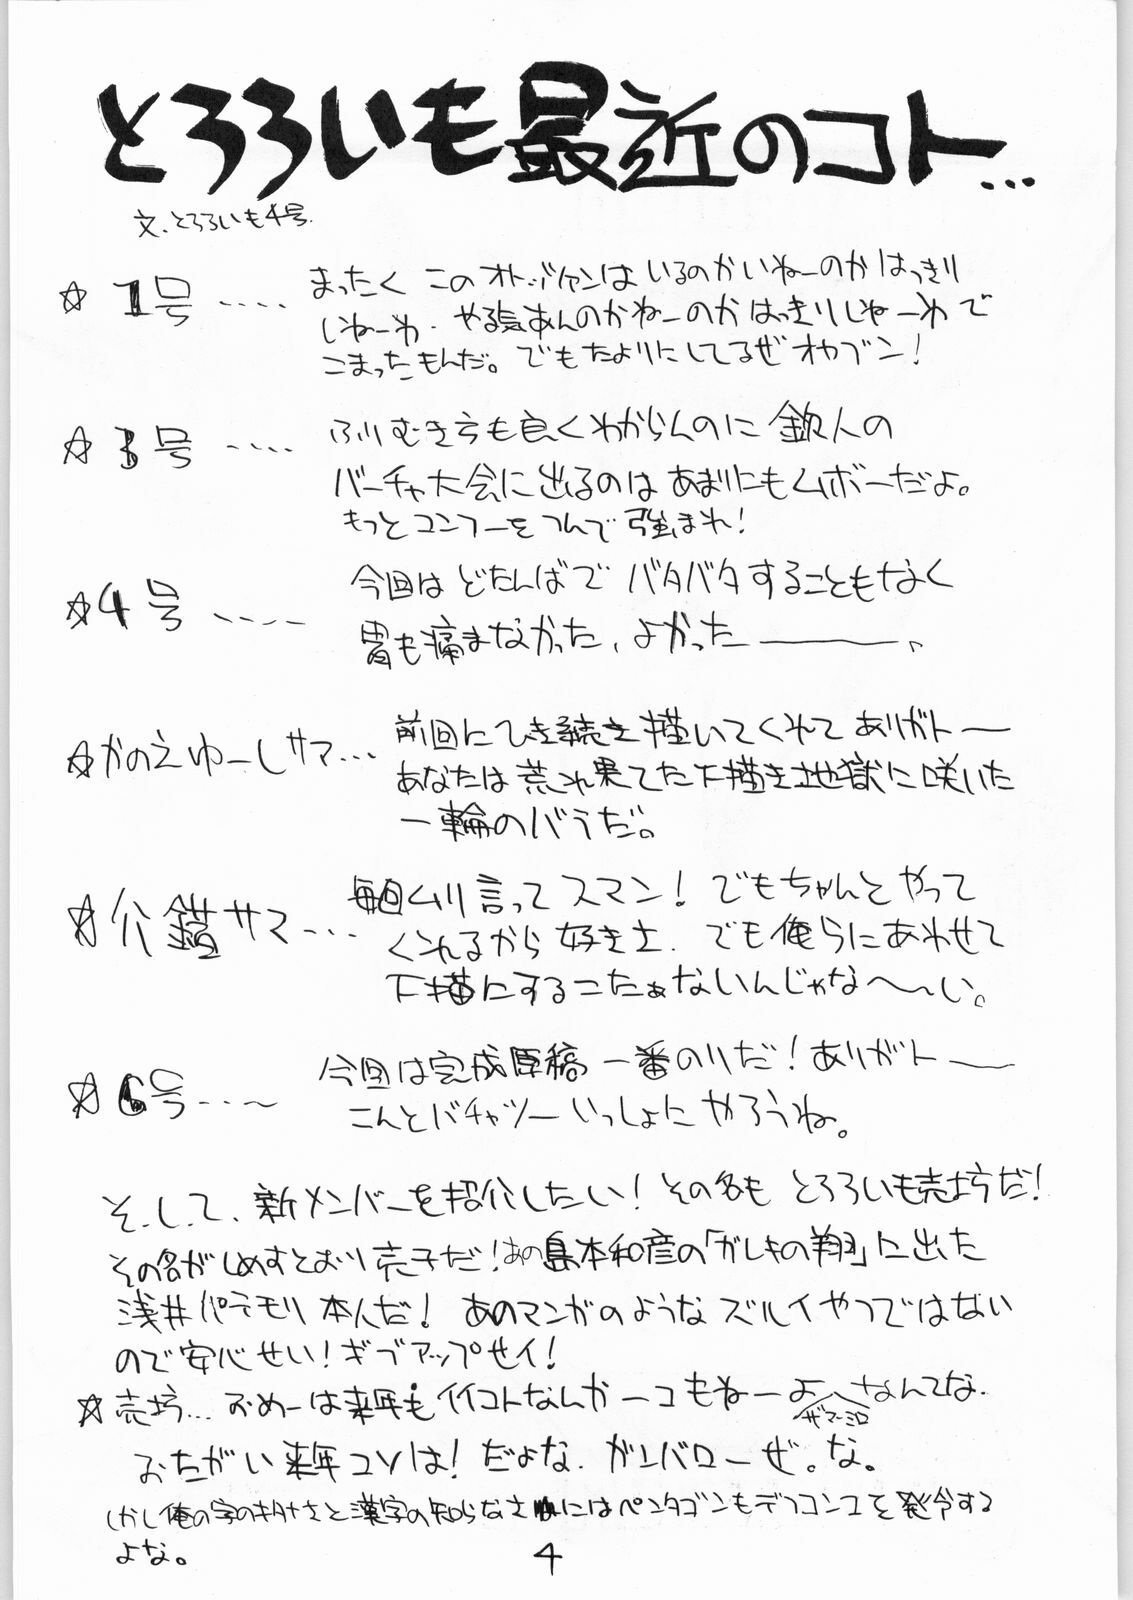 とろろいも最近のコト…
文、とろろいも4号.
☆ 1号 ‥‥ まったく このオトッツァンは いるのかいねーのか はっきり
しねーわ. やる気あんのかねーのか はっきりしねーわ で
こまったもんだ。でもたよりにしてるぜ オヤブン!
☆ 3号 ‥‥ ふりむき方も良くわからんのに 鉄人の
バーチャ大会に出るのは あまりにもムボーだよ。
もっと コンフーを つんで 強まれ!
☆4号 ‥‥ 今回は どたんばで バタバタすることもなく
胃も痛まなかった、よかった――、
☆かのえゆーしサマ… 前回にひき続き描いてくれて ありガトー
あなたは荒れ果てた下描き地獄に咲いた
一輪のバラだ。
☆介錯サマ… 毎回ムリ言って スマン! でもちゃんと やって
くれるから 好きさ. でも俺らにあわせて
下描にするこたぁないんじゃな〜〜い。
☆6号‥‥ 今回は完成原稿 一番のりだ! ありがトー
こんとバチャツー いっしょに やろうね。
そ.し.て、新メンバーを紹介したい! その名も とろろいも売坊だ!
その名がしめすとおり売子だ! あの島本和彦の「ガレキの翔」に出た
浅井パラモリ 本人だ! あのマンガのような ズルイやつではない
ので 安心せい! ギブアップせイ!
☆売坊… おめーは来年も イイコトなんか 一コ もねーよ なんてな.
ザマーミロ
おたがい 来年 コソは! だよな. ガンバローぜ。な。
しかし俺の字のキタナさと漢字の知らなさにはペンタゴンもデフコン1を発令する
よな。
4